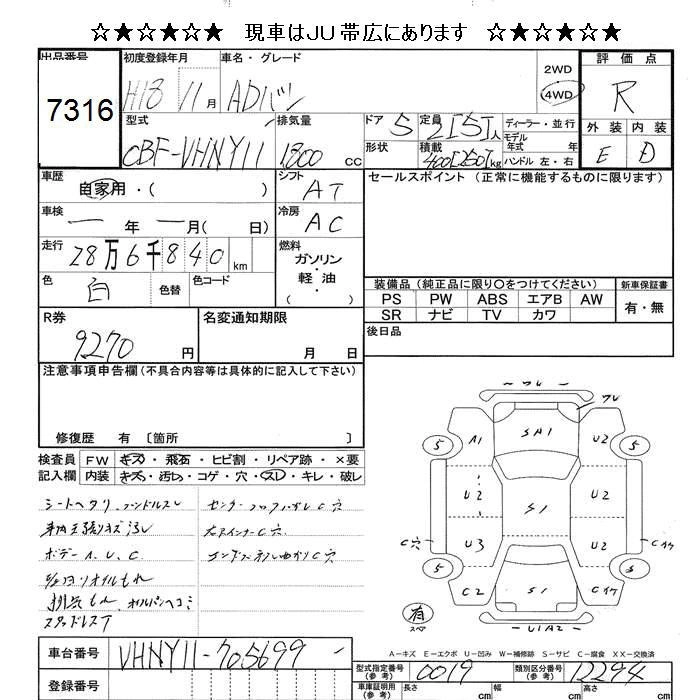 ☆★☆★☆★☆ 現車はJU帯広にあります ☆★☆★☆★☆
出品番号
7316
初度登録年月
H18 11月
車名・グレード
ADバン
2WD
4WD
評価点
R
外装 内装
E D
型式
CBF-VHNY11
排気量
1800 cc
ドア 5
形状
定員 2[5]人
積載 400[250]kg
ディーラー・並行
モデル年式 年式
ハンドル 左・右
車歴
自家用・( )
シフト
AT
セールスポイント (正常に機能するものに限ります)
車検
— 年 — 月( 日)
冷房
AC
走行
28万6千840 km
燃料
ガソリン
・
軽・油
( )
色
白
色替
色コード
装備品(純正品に限り○をつけてください)
PS PW ABS エアB AW
SR ナビ TV カワ
新車保証書
有・無
R券
9270 円
名変通知期限
月 日
後日品
注意事項申告欄(不具合内容等は具体的に記入して下さい)
修復歴 有 〔箇所 〕
検査員記入欄
FW キズ・飛石・ヒビ割・リペア跡・×要
内装 キズ・汚れ・コゲ・穴・スレ・キレ・破レ
シートヘタリ、ハンドルスレ
ボデーA、U、C
オイルもれ
スタッドレスT
C穴
C穴
C穴
ワレ
ワレ
A1 SA1 U2
5 5
U2 S1 U2
U3 U2
C穴
5
C2 S1
有
U1A2
A-キズ E-エクボ U-凹み W-補修跡 S-サビ C-腐食 XX-交換済
車台番号
VHNY11-705699
登録番号
型式指定番号(参考)
0019
類別区分番号(参考)
12294
車庫証明用(参考)
長さ cm
幅 cm
高さ cm